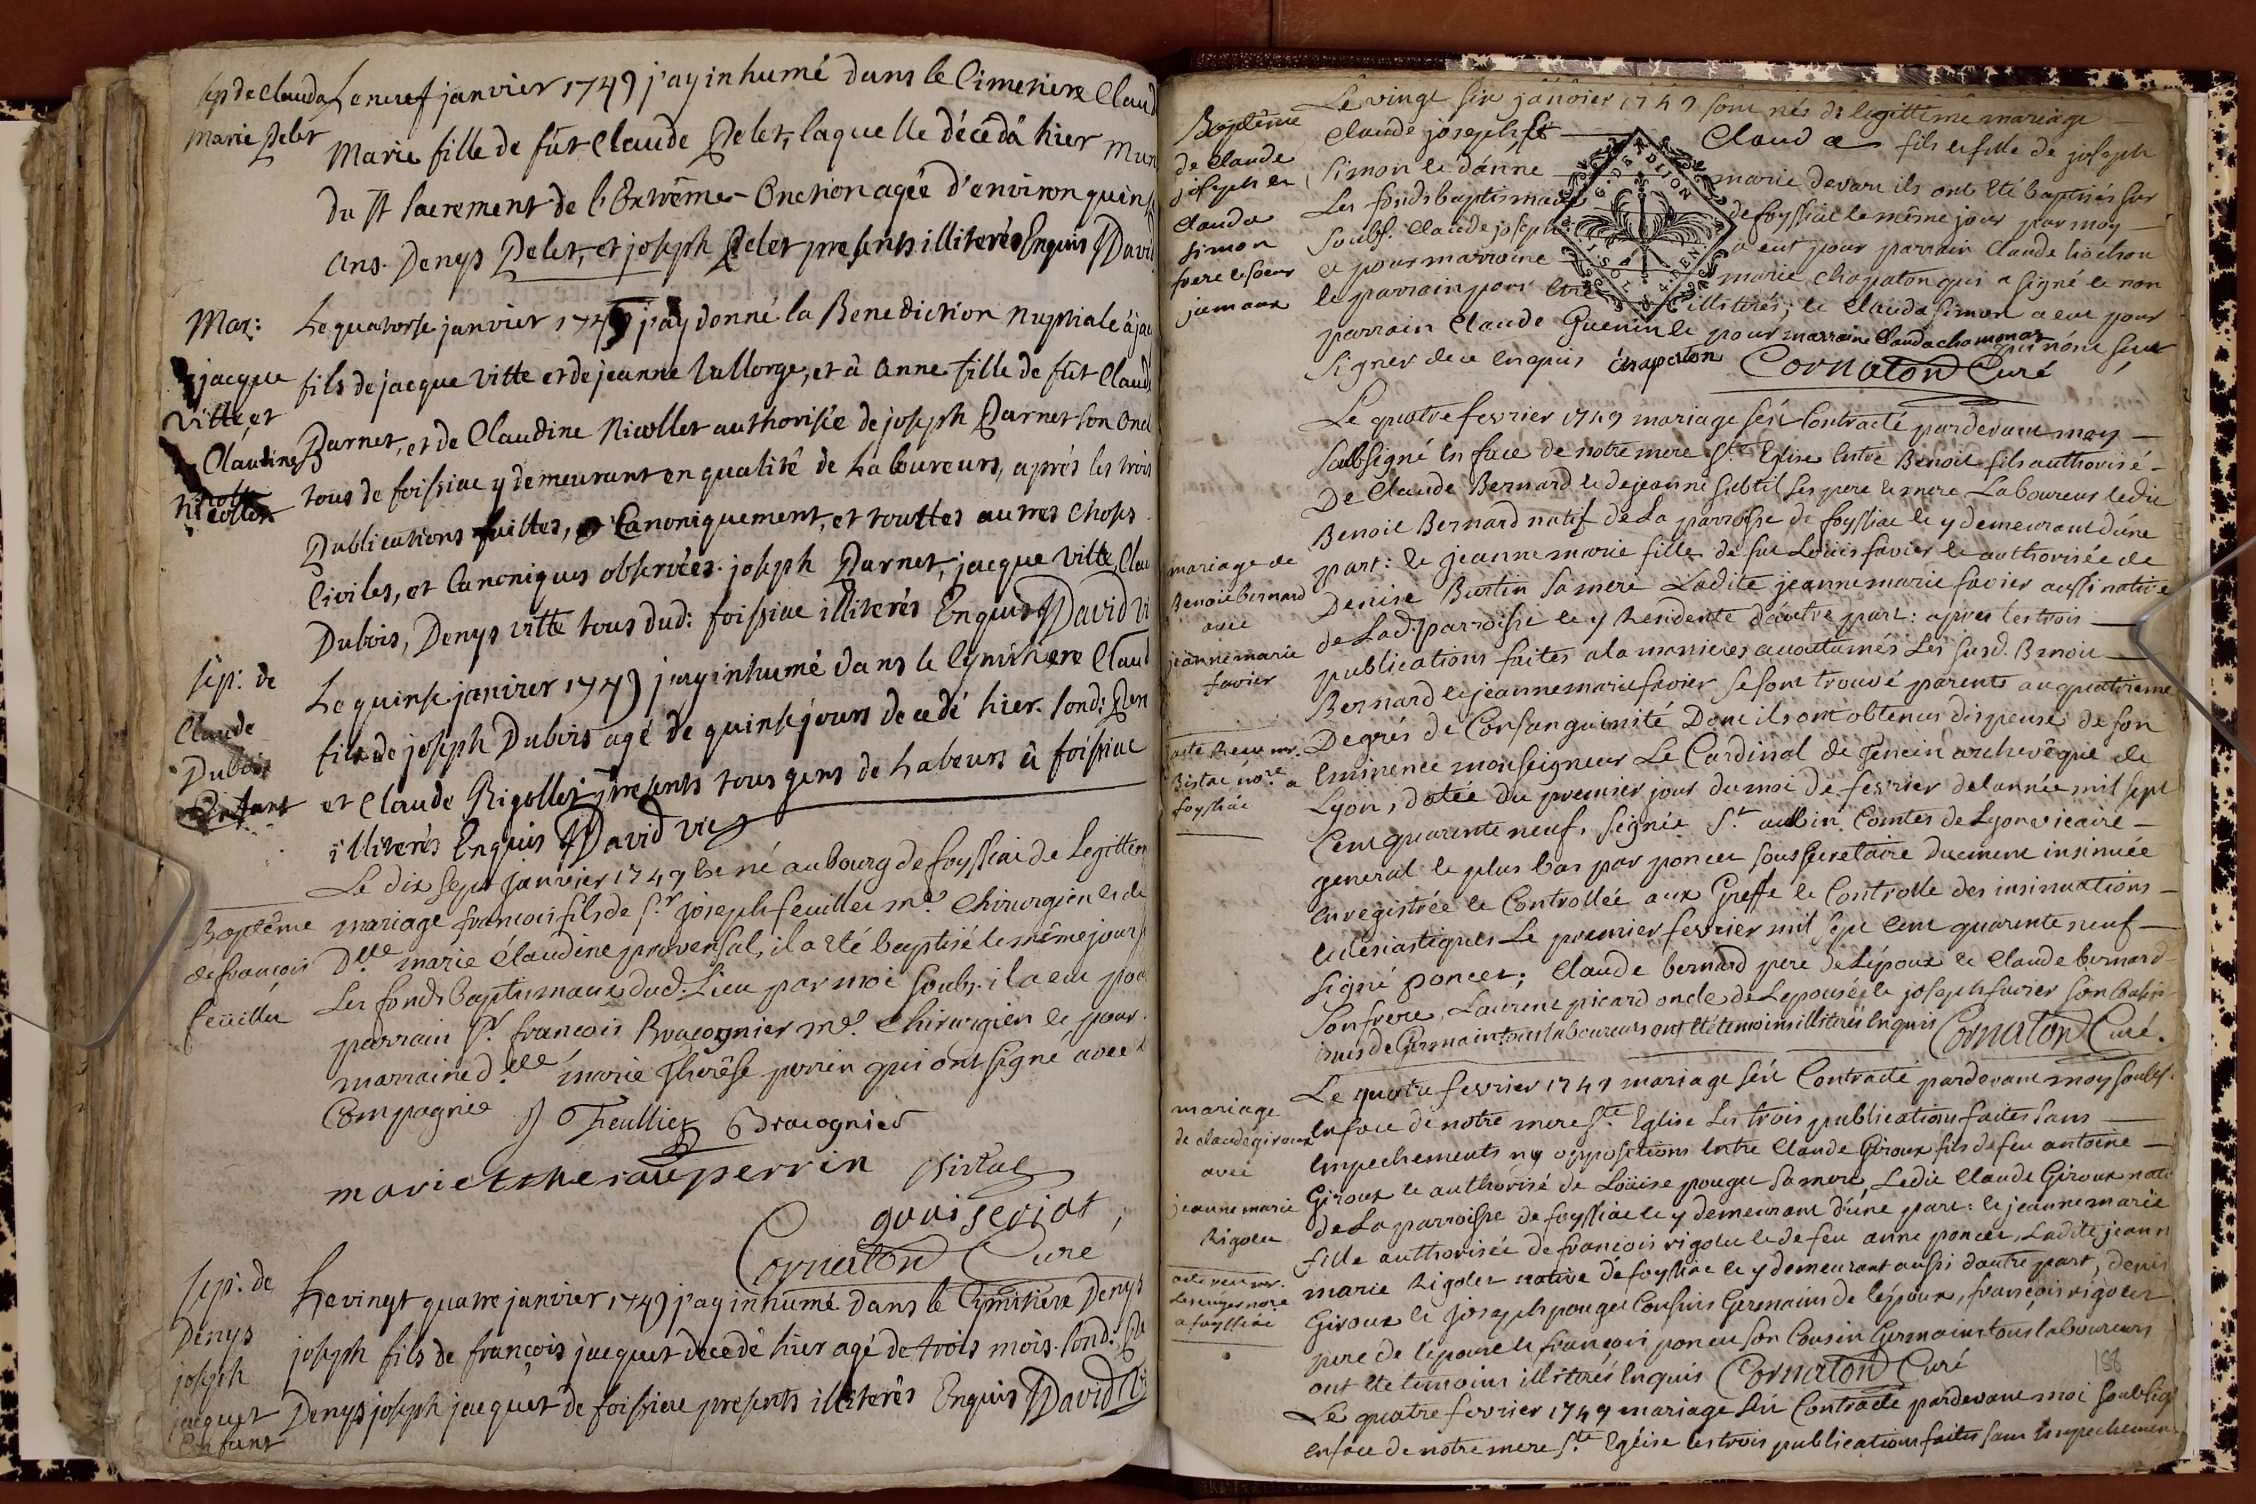 sep de Clauda
Marie Pelet
Le neuf janvier 1749 j'ay inhumé dans le Cimetiere Claud
Marie fille de fût Claude Pelet, laquelle décêdà hier mun
du st sacrement de l'Extrême-Onction agée d'environ quins
ans. Denys Pelet, et joseph Pelet presents illiterés Enquis David
Mar:
jacque
Vitte, et
Claudine
Nicollet
Le quatorse janvier 1749 j'ay donné la Benediction nuptiale à jac
fils de jacque Vitte et de jeanne Vallorge, et à Anne fille de fût Claude
Parnet, et de Claudine Nicollet authorisée de joseph Parnet son oncl
tous de foissiac y demeurant en qualité de Laboureurs, aprés les trois
Publications faittes, Canoniquement, et touttes autres choses
Civiles, et Canoniques observées. joseph Parnet, jacque Vitte, Clau
Dubois, Denys vitte tous dud: foissiac illiterés Enquis David Vi
sep: de
Claude
Dubois
Enfant
Le quinse janvier 1749 j'ay inhumé dans le Cymithere Claud
fils de joseph Dubois agé de quinse jours decedé hier. sond: Pere
et Claude Rigollet presents tous gens de Labeurs à foissiac
illiterés Enquis David vic
Baptême
de francois
feüillet
Le dix sept janvier 1749 est né au bourg de foyssiac de Legittem
mariage francois fils de Sr. joseph feuillet me. chirurgien et de
Dlle marie Claudine proversal, il a eté baptisé le même jour
Les fonds baptismaux dud. Lieu par moi soubs. il a eu pou
parrain Sr. francois Bracognier me. chirurgien et pour
marraine dlle marie Therêse perrin qui ont signé avec l
Compagnie
J Feulliet Bracognier
marie theraise perrin Bistac
gauiseriat,
Cornaton Curé
sep: de
Denys
joseph
jacquet
Enfant
Le vingt quatre janvier 1749 j'ay inhumé dans le Cymitiere Denys
joseph fils de françois jacquet decedé hier agé de trois mois. sond: Pe
Denys joseph jacquet de foissiac presents illiterés Enquis David Vi
Baptême
de Claude
joseph et
Clauda
simon
frere et soeur
jumaux
Le vingt six janvier 1749 sont nés de legittime mariage
Claude joseph et Clauda fils et fille de joseph
simon et d'anne marie devare ils ont eté baptisés sur
Les fonds baptismaux de foyssiac le même jour par moy
soubs. Claude joseph a eut pour parrain Claude
et pour marraine marie chapaton qui a signé et non
le parrain pour etre illiterés; et Clauda simon a eut pour
parrain Claude Guenin et pour marraine Clauda chamonar
signer de ce enquis chapaton Cornaton Curé
G. DE DIJON
SOLS 4 DENI
mariage de
Benoit bernard
avec
jeanne marie
favier
acte Recu mr.
Bistac nore a
foyssiac
Le quatre fevrier 1749 mariage s'est Contracté pardevant moy
soubsigné en face de notre mere Ste Eglise entre Benoit fils authorisé
De Claude Bernard et de jeanne subtil ses pere et mere Laboureur ledit
Benoit Bernard natif de La parroisse de foyssiac et y demeurant d'une
part: et jeanne marie fille de fut Loüis favier et authorisée de
Denise Burtin sa mere Ladite jeanne marie favier aussi native
de Lad. parroisse et y Residente d'autre part: apres les trois
publications faites a la manieres accoutumés Les susd. Benoit
Bernard et jeanne marie favier se sont trouvé parents au quatrieme
Degrés de Consanguinité Dont ils ont obtenus dispense de son
Eminence monseigneur Le Cardinal de Tencin archevêque de
Lyon, datée du premier jour du moi de fevrier de l'année mil sept
Cent quarente neuf, signée St. aubin Comtes de Lyon vicaire
general et plus bas par poncet sous secretaire duement insinuée
enregistrée et Controllée aux Greffe et Controlle des insinuations
eclesiastiques Le premier fevrier mil sept cent quarente neuf
signé poncet; Claude bernard pere de L'époux et Claude bernard
son frere, Laurent picard oncle de Lepousée et joseph favier son Cousin
issus de Germain tous laboureurs ont eté temoins illiterés enquis Cornaton Curé.
mariage
de claude giroux
avec
jeanne marie
Rigolet
acte recu mr.
nore
a foyssiac
Le quatre fevrier 1749 mariage s'est Contracté pardevant moy soubs.
en face de notre mere Ste Eglise Les trois publications faites sans
empechements ny oppositions entre Claude Giroux fils de feu antoine
Giroux et authorisé de Loüise pouget sa mere, Ledit Claude Giroux nati
de La parroisse de foyssiac et y demeurant d'une part: et jeanne marie
fille authorisée de francois rigolet et de feu anne poncet, Ladite jeann
marie Rigolet native de foyssiac et y demeurant aussi d'autre part, denis
Giroux et joseph pouget Cousins Germains de l'époux, françois rigolet
pere de l'epouse et françois poncet son Cousin Germain tous laboureurs
ont eté temoins illiterés enquis Cornaton Curé
188
Le quatre fevrier 1749 mariage s'est Contracté pardevant moi soubsig
en face de notre mere Ste Eglise les trois publications faites sans empechemen